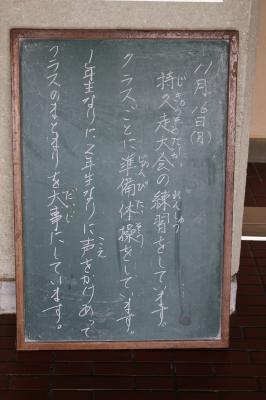 11月16日(月)
じきゅうそうたいかい れんしゅう
持久走大会の練習をしています。
じゅんび たいそう
クラスごとに準備体操をしています。
こえ
1年生なりに、2年生なりに声をかけあって
だいじ
クラスのまとまりを大事にしています。